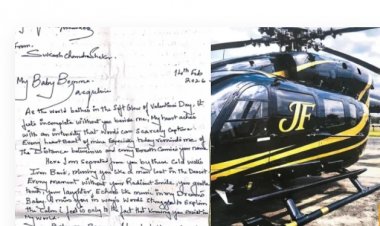 From,
Sukash Chandrashekhar
14th Feb
2026
My Baby Bomma
Jacqueline
As the world bathes in the Soft Glow of Valentines Day. It
feels incomplete without you beside me, My heart aches
with an intensity that words can scarcely capture
Every heart Beat of mine Especially today reminds me of
The Distance between us and every Breath Carries your name
Here I am Separated from you by these Cold walls
Iron Bars, missing you like a man lost in the Desert
Every moment without your Radiant Smile, your gentle
touch, your laughter, Echoes like music in my Dreams
Baby I miss you in ways words struggle to Explain
the Calm I feel is only to the fact that knowing you exist in
my world.
JF